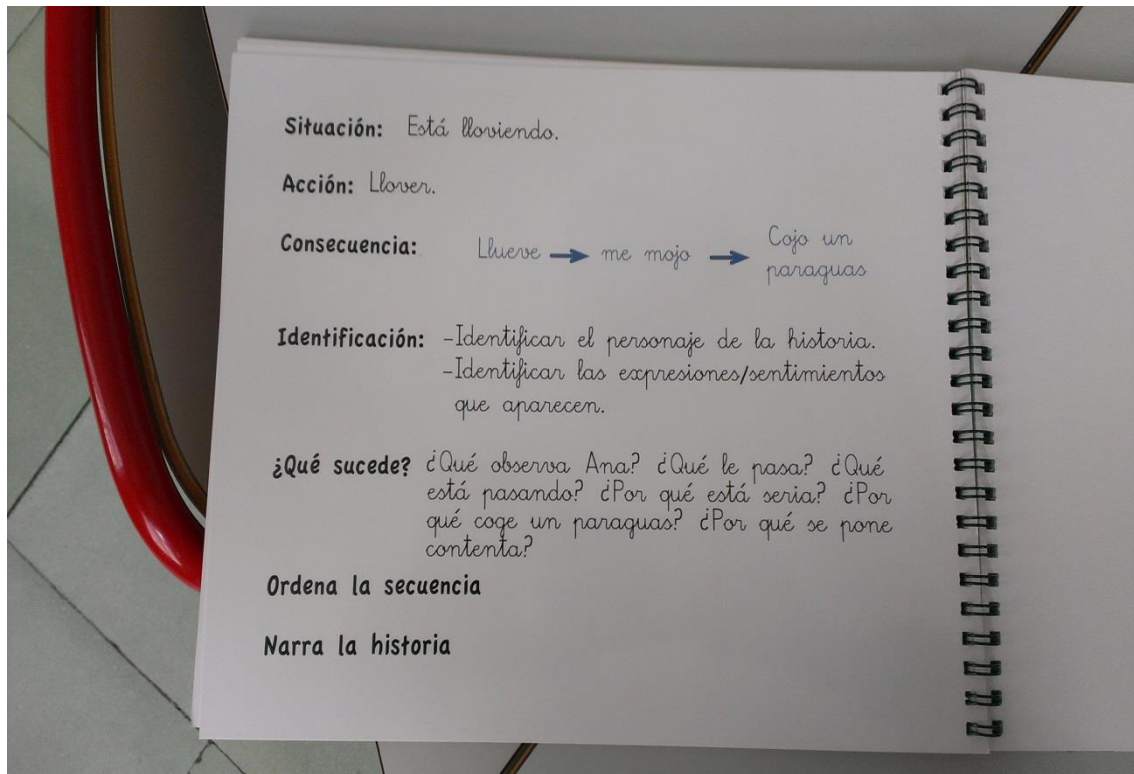 Situación: Está lloviendo.
Acción: Llover.
Consecuencia: Llueve → me mojo → Cojo un
paraguas
Identificación: -Identificar el personaje de la historia.
-Identificar las expresiones/sentimientos
que aparecen.
¿Qué sucede? ¿Qué observa Ana? ¿Qué le pasa? ¿Qué
está pasando? ¿Por qué está seria? ¿Por
qué coge un paraguas? ¿Por qué se pone
contenta?
Ordena la secuencia
Narra la historia